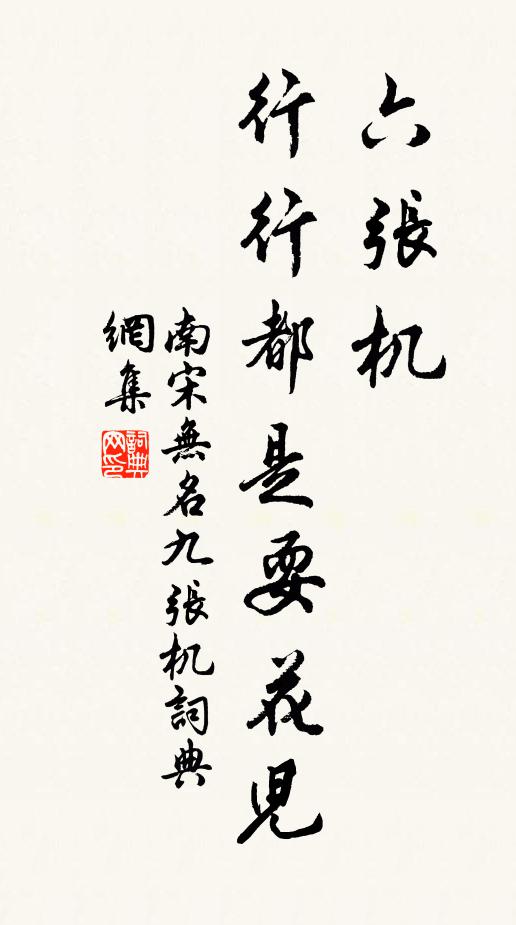 六張机
行行都是耍花児
南宋無名九張机詞典
網集
詞典
网印